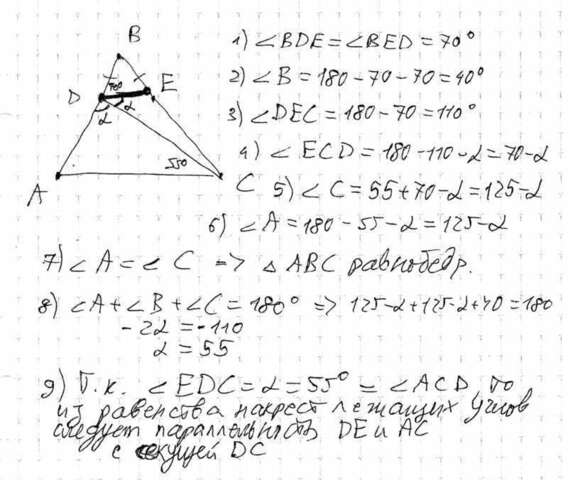 B
70°
D
E
α
α
55°
A
C
1) ∠BDE = ∠BED = 70°
2) ∠B = 180 - 70 - 70 = 40°
3) ∠DEC = 180 - 70 = 110°
4) ∠ECD = 180 - 110 - α = 70 - α
5) ∠C = 55 + 70 - α = 125 - α
6) ∠A = 180 - 55 - α = 125 - α
7) ∠A = ∠C => △ABC равнобедр.
8) ∠A + ∠B + ∠C = 180° => 125 - α + 125 - α + 40 = 180
- 2α = - 110
α = 55
9) Т.к. ∠EDC = α = 55° = ∠ACD, то
из равенства накрест лежащих углов
следует параллельность DE и AC
с секущей DC